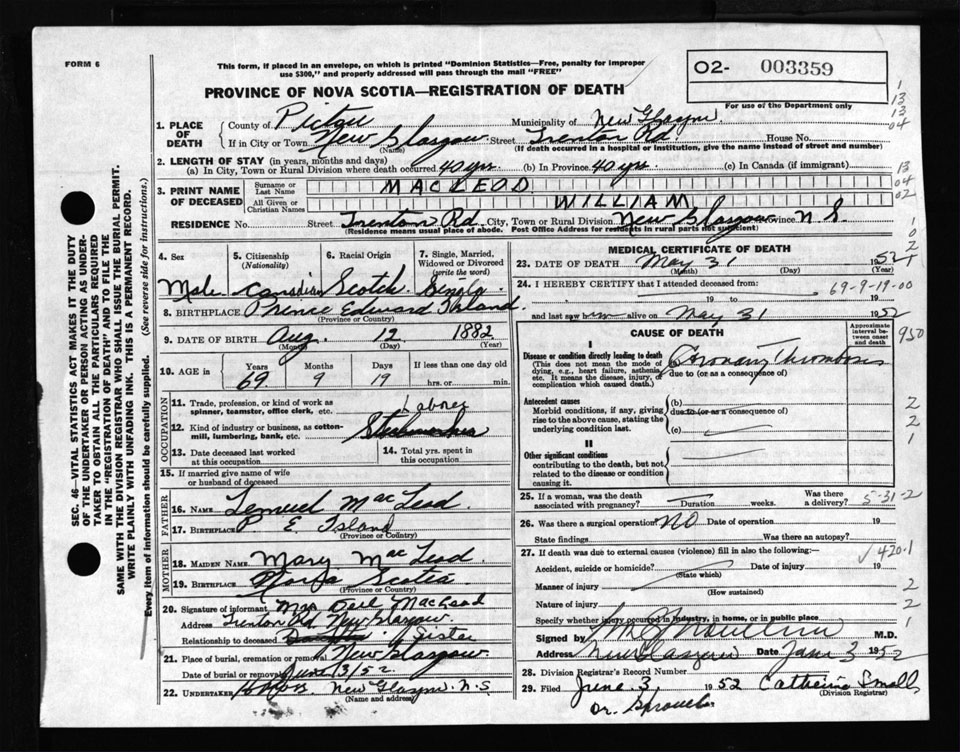 FORM 6
This form, if placed in an envelope, on which is printed "Dominion Statistics—Free, penalty for improper
use $300," and properly addressed will pass through the mail "FREE"
O2- 003359
PROVINCE OF NOVA SCOTIA—REGISTRATION OF DEATH
For use of the Department only
1
13
13
04
1. PLACE OF DEATH
County of Pictou Municipality of New Glasgow
If in City or Town New Glasgow Street Trenton Rd. House No.
(Name) (If death occurred in a hospital or institution, give the name instead of street and number)
2. LENGTH OF STAY (in years, months and days)
(a) In City, Town or Rural Division where death occurred 40 yrs. (b) In Province 40 yrs. (c) In Canada (if immigrant)
13
04
02
3. PRINT NAME OF DECEASED
Surname or Last Name MACLEOD
All Given or Christian Names WILLIAM
RESIDENCE No. Street Trenton Rd. City, Town or Rural Division New Glasgow Province N.S.
(Residence means usual place of abode. Post Office Address for residents in rural parts not sufficient)
1
0
2
1
4. Sex Male
5. Citizenship (Nationality) Canadian
6. Racial Origin Scotch
7. Single, Married, Widowed or Divorced (write the word) Single
8. BIRTHPLACE Prince Edward Island
(Province or Country)
9. DATE OF BIRTH Aug. 12 1882
(Month) (Day) (Year)
10. AGE in Years Months Days If less than one day old
69 9 19 hrs. or min.
OCCUPATION
11. Trade, profession, or kind of work as spinner, teamster, office clerk, etc. Laborer
12. Kind of industry or business, as cotton-mill, lumbering, bank, etc.
13. Date deceased last worked at this occupation
14. Total yrs. spent in this occupation
15. If married give name of wife or husband of deceased
FATHER
16. Name Lemuel MacLeod
17. Birthplace P. E. Island
(Province or Country)
MOTHER
18. MAIDEN NAME Mary MacLeod
19. BIRTHPLACE Nova Scotia
(Province or Country)
20. Signature of informant Mrs MacLeod
Address Trenton Rd. New Glasgow.
Relationship to deceased Sister
21. Place of burial, cremation or removal New Glasgow.
Date of burial or removal June 3/52.
22. UNDERTAKER New Glasgow N.S.
(Name and address)
MEDICAL CERTIFICATE OF DEATH
23. DATE OF DEATH May 31 1952
(Month) (Day) (Year)
24. I HEREBY CERTIFY that I attended deceased from 69-9-19-00
19 to 19
and last saw him alive on May 31 1952
CAUSE OF DEATH
Approximate interval between onset and death
950
I
Disease or condition directly leading to death
(This does not mean the mode of dying, e.g., heart failure, asthenia, etc. It means the disease, injury, or complication which caused death.)
Coronary Thrombosis
due to (or as a consequence of)
Antecedent causes
Morbid conditions, if any, giving rise to the above cause, stating the underlying condition last.
(b)
due to (or as a consequence of)
(c)
2
2
1
II
Other significant conditions
contributing to the death, but not related to the disease or condition causing it.
25. If a woman, was the death associated with pregnancy? Duration weeks. Was there a delivery?
5-31-2
26. Was there a surgical operation? NO Date of operation 19
State findings Was there an autopsy?
27. If death was due to external causes (violence) fill in also the following:—
√420.1
Accident, suicide or homicide? Date of injury 19
(State which)
Manner of injury 2
(How sustained)
Nature of injury 2
Specify whether injury occurred in industry, in home, or in public place 1
Signed by M.D.
Address New Glasgow Date June 3 1952
28. Division Registrar's Record Number
29. Filed June 3, 1952 Catherine Small
(Division Registrar)
Dr.
SEC. 46—VITAL STATISTICS ACT MAKES IT THE DUTY
OF THE UNDERTAKER OR PERSON ACTING AS UNDER-
TAKER TO OBTAIN ALL THE PARTICULARS REQUIRED
IN THE "REGISTRATION OF DEATH" AND TO FILE THE
SAME WITH THE DIVISION REGISTRAR WHO SHALL ISSUE THE BURIAL PERMIT.
WRITE PLAINLY WITH UNFADING INK. THIS IS A PERMANENT RECORD.
Every item of information should be carefully supplied. (See reverse side for instructions.)